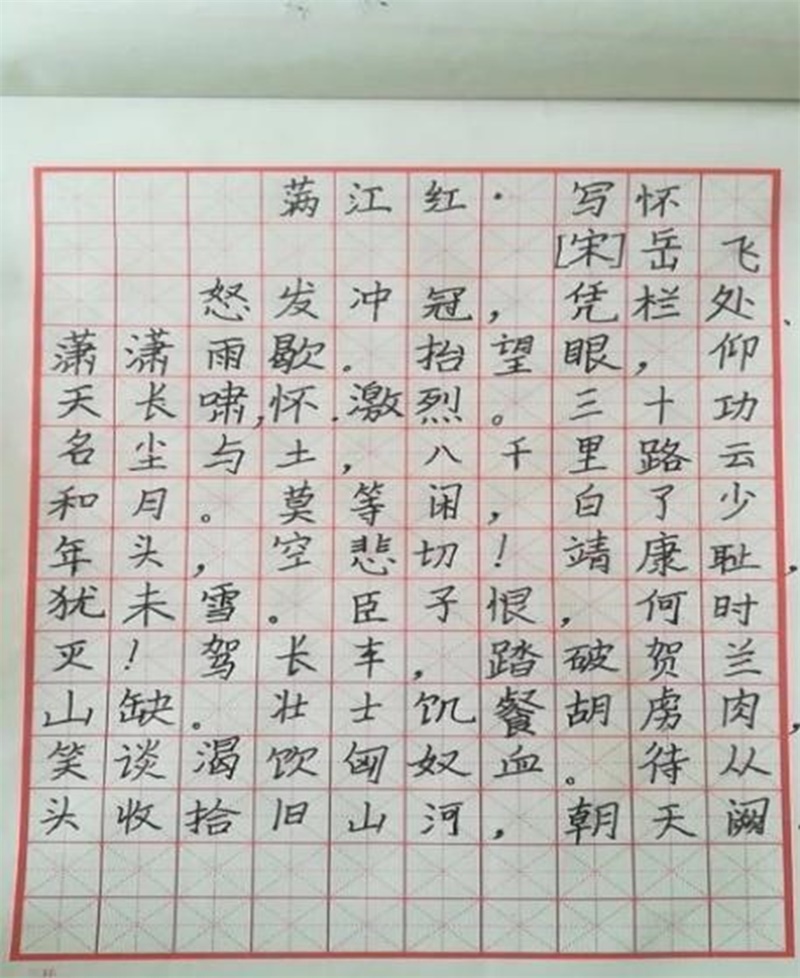 满江红·写怀
[宋]岳飞
怒发冲冠,凭栏处、
潇潇雨歇。抬望眼,仰
天长啸,怀.激烈。三十功
名尘与土,八千里路云
和月。莫等闲,白了少
年头,空悲切!靖康耻,
犹未雪。臣子恨,何时
灭!驾长车,踏破贺兰
山缺。壮士饥餐胡虏肉,
笑谈渴饮匈奴血。待从
头收拾旧山河,朝天阙.